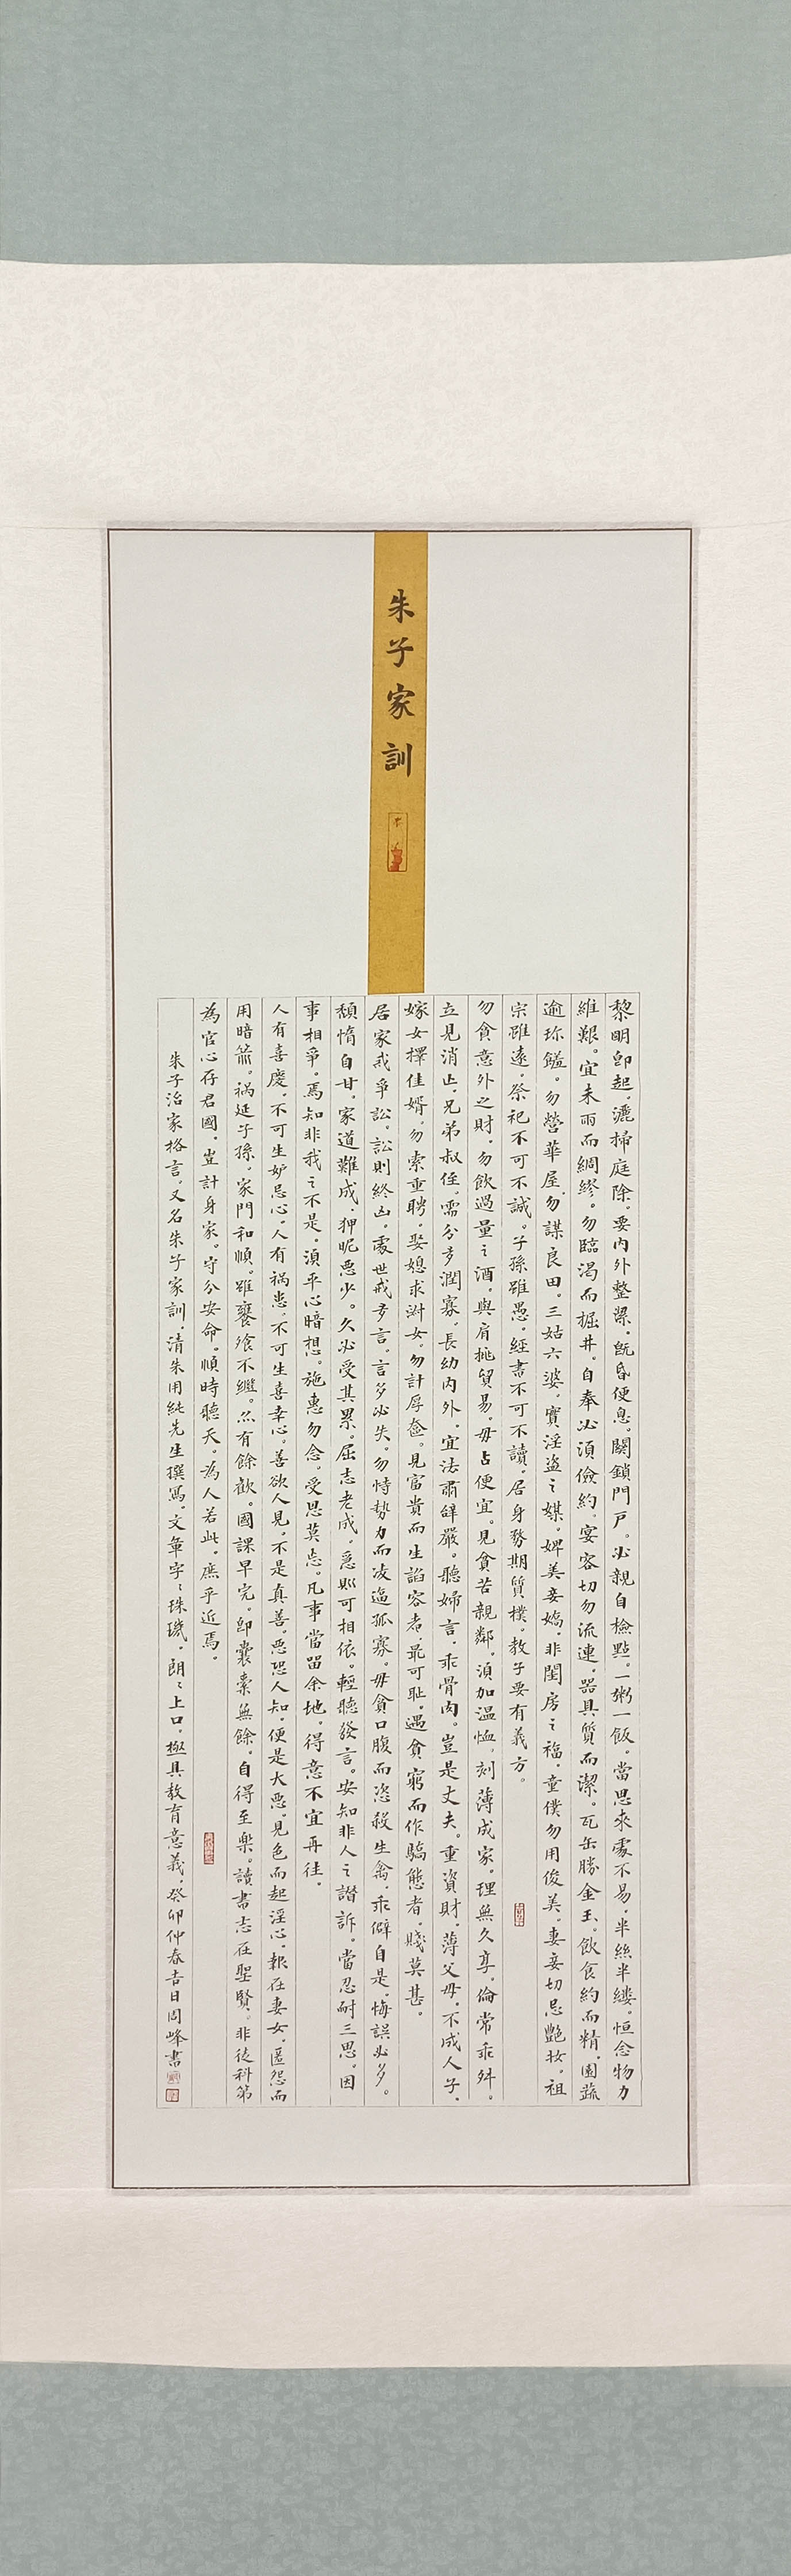 朱子家訓
黎明即起。灑掃庭除。要内外整潔。既昏便息。關鎖門戶。必親自檢點。一粥一飯。當思來處不易。半絲半縷。恒念物力
維艱。宜未雨而綢繆。勿臨渴而掘井。自奉必須儉約。宴客切勿流連。器具質而潔。瓦缶勝金玉。飲食約而精。園蔬
逾珍饈。勿營華屋。勿謀良田。三姑六婆。實淫盜之媒。婢美妾嬌。非閨房之福。童僕勿用俊美。妻妾切忌艷妝。祖
宗雖遠。祭祀不可不誠。子孫雖愚。經書不可不讀。居身務期質樸。教子要有義方。
勿貪意外之財。勿飲過量之酒。與肩挑貿易。毋占便宜。見貧苦親鄰。須加温恤。刻薄成家。理無久享。倫常乖舛。
立見消亡。兄弟叔侄。需分多潤寡。長幼内外。宜法肅辭嚴。聽婦言。乖骨肉。豈是丈夫。重資財。薄父母。不成人子。
嫁女擇佳婿。勿索重聘。娶媳求淑女。勿計厚奩。見富貴而生諂容者。最可耻。遇貧窮而作驕態者。賤莫甚。
居家戒爭訟。訟則終凶。處世戒多言。言多必失。勿恃勢力而凌逼孤寡。毋貪口腹而恣殺生禽。乖僻自是。悔誤必多。
頹惰自甘。家道難成。狎昵惡少。久必受其累。屈志老成。急則可相依。輕聽發言。安知非人之譖訴。當忍耐三思。因
事相爭。焉知非我之不是。須平心暗想。施惠勿念。受恩莫忘。凡事當留余地。得意不宜再往。
人有喜慶。不可生妒忌心。人有禍患。不可生喜幸心。善欲人見。不是真善。惡恐人知。便是大惡。見色而起淫心。報在妻女。匿怨而
用暗箭。禍延子孫。家門和順。雖饔飧不繼。亦有餘歡。國課早完。即囊橐無餘。自得至樂。讀書志在聖賢。非徒科第
為官心存君國。豈計身家。守分安命。順時聽天。為人若此。庶乎近焉。
朱子治家格言。又名朱子家訓。清朱用純先生撰寫。文章字〻珠璣。朗〻上口。極具教育意義。癸卯仲春吉日同峰書